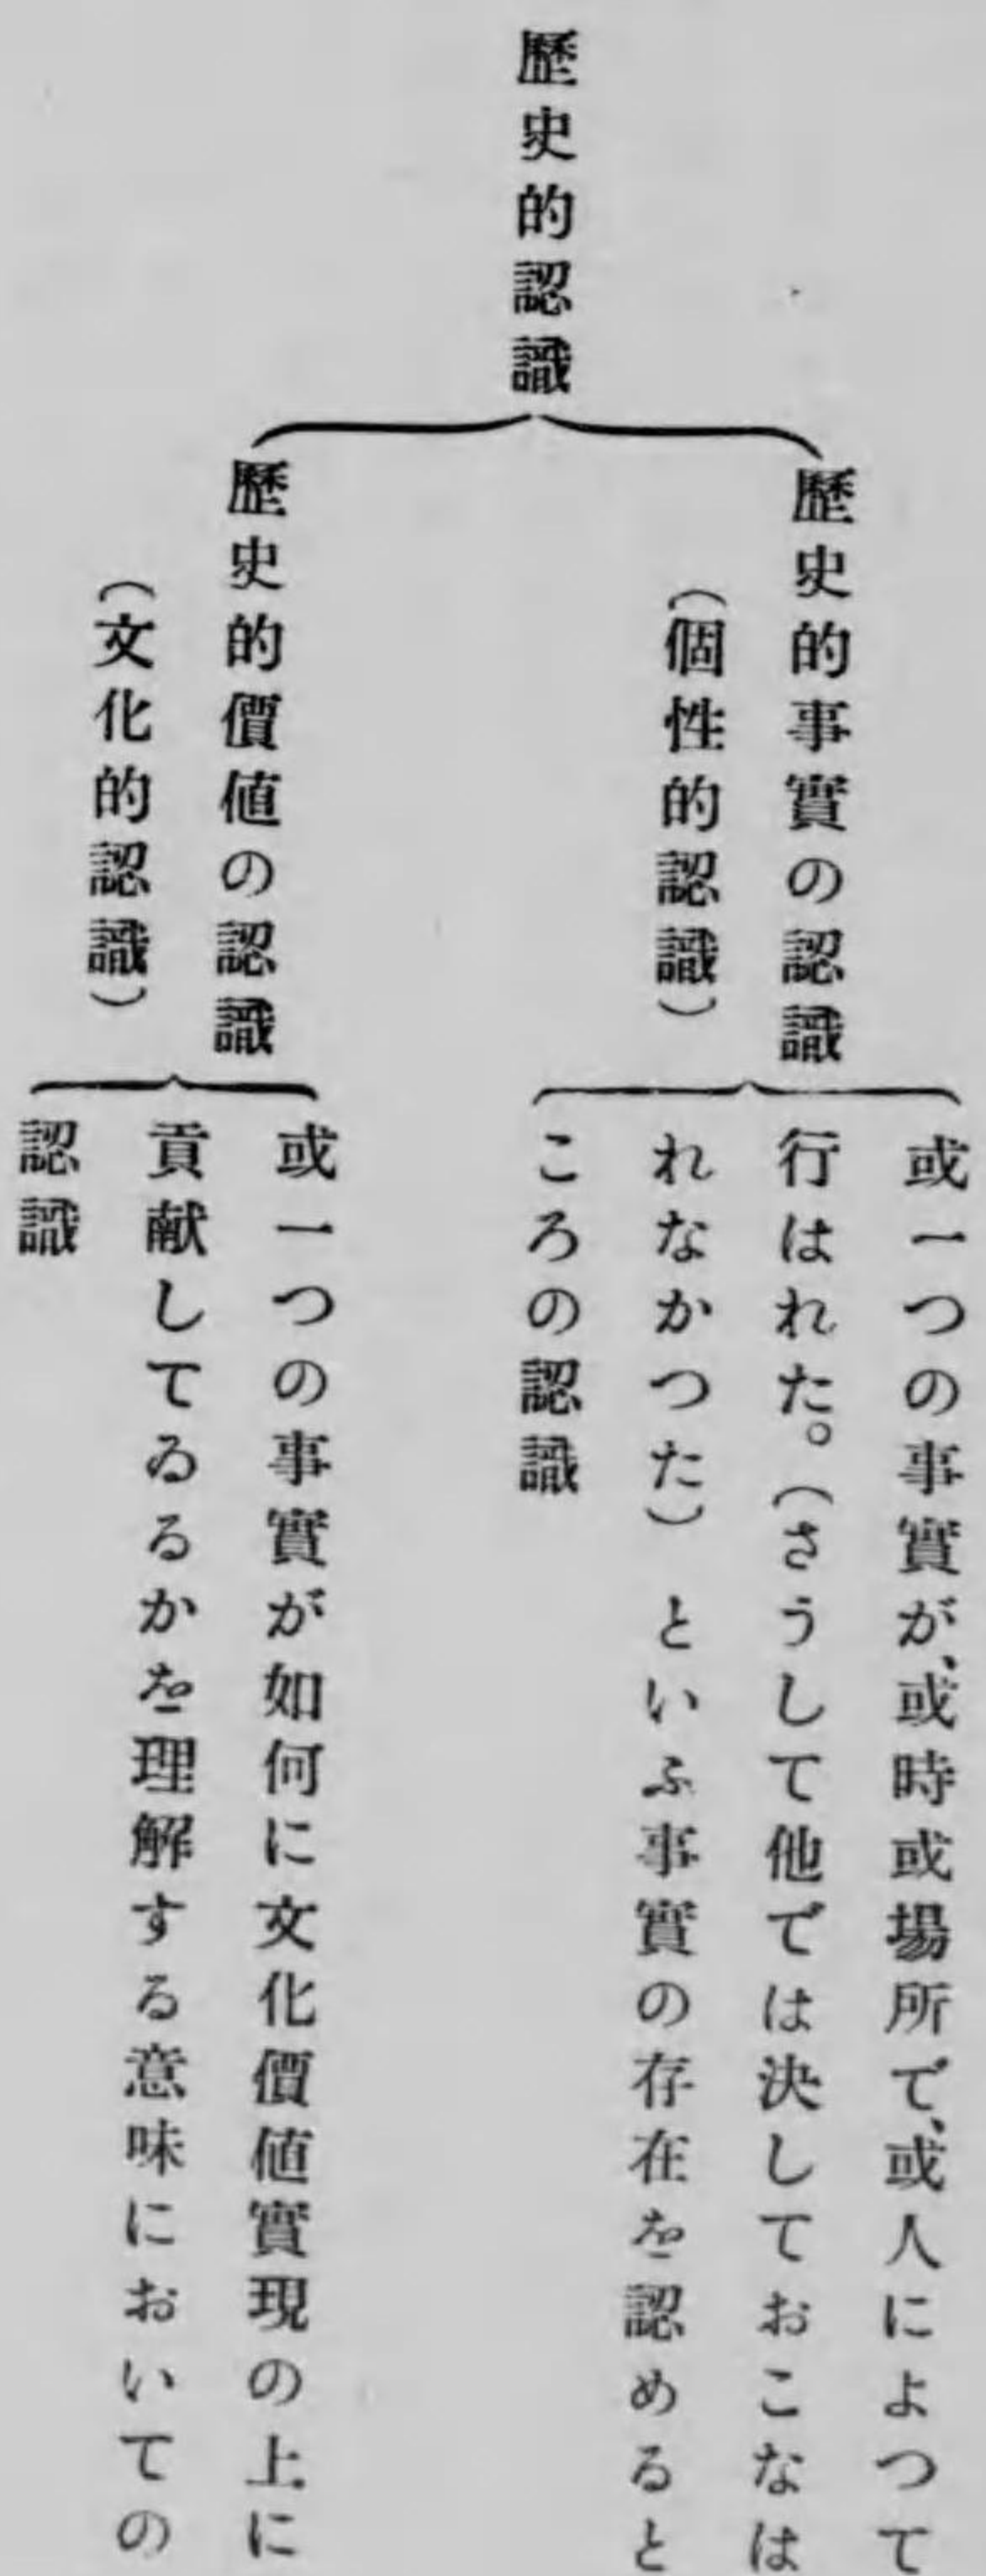 歷史的認識
歷史的事實の認識
（個性的認識）
或一つの事實が、或時或場所で、或人によつて
行はれた。（さうして他では決しておこなは
れなかつた）といふ事實の存在を認めると
ころの認識
歷史的價値の認識
（文化的認識）
或一つの事實が如何に文化價値實現の上に
貢献してゐるかを理解する意味においての
認識